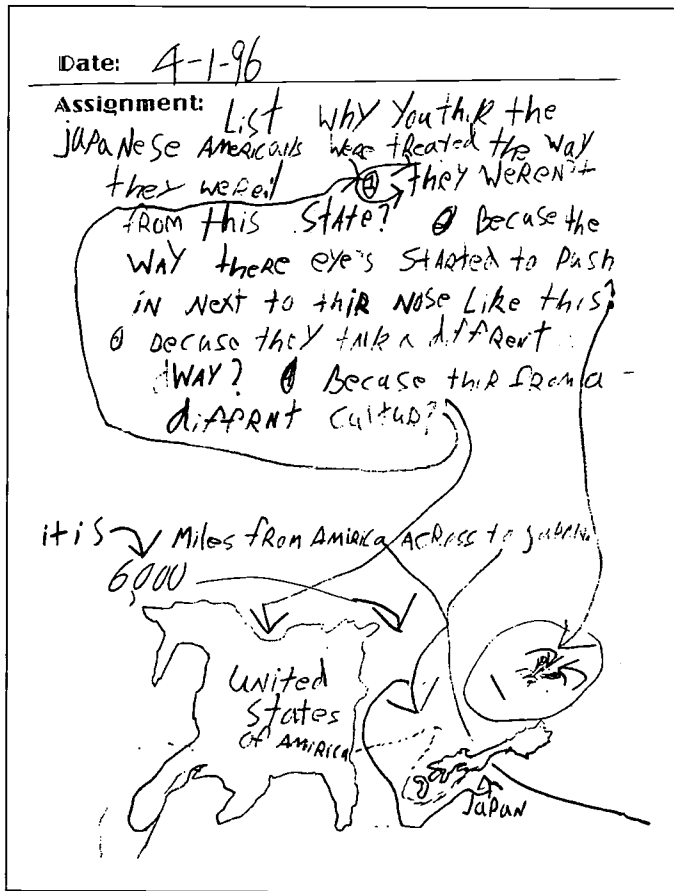 Date: 4-1-96
Assignment: List why you thir the
japanese americans were treated the way
they wereil ① they weren't
from this state? ② Becuse the
way there eye's started to push
in next to thir nose like this?
③ becuse they talk a diffrent
way? ④ Becuse thir from a
diffrnt cultur?
it is miles from Amirica across to japan
6,000
United
States
of Amirica
Japan